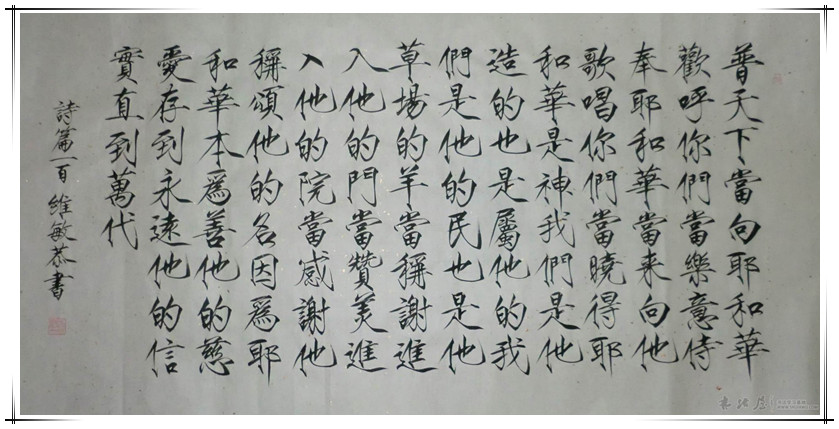 普天下當向耶和華
歡呼你們當樂意侍
奉耶和華當来向他
歌唱你們當曉得耶
和華是神我們是他
造的也是屬他的我
們是他的民也是他
草場的羊當稱謝進
入他的門當贊美進
入他的院當感謝他
稱頌他的名因爲耶
和華本爲善他的慈
愛存到永遠他的信
實直到萬代
詩篇一百 維敏恭書